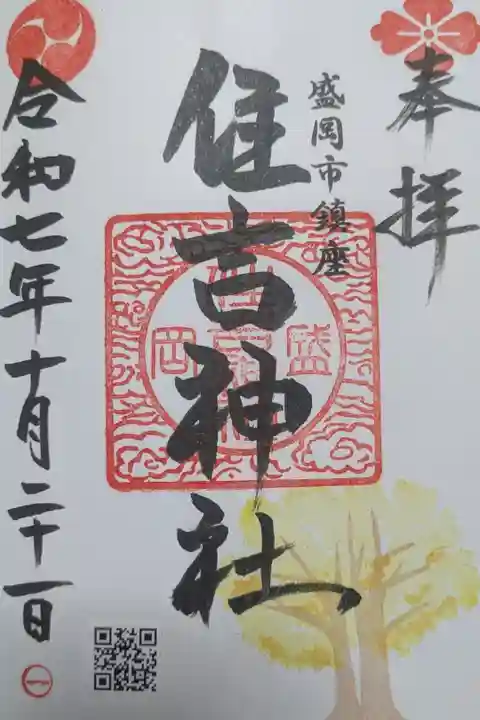 奉拝
盛岡市鎮座
住吉神社
盛
岡
令和七年十月二十一日
一